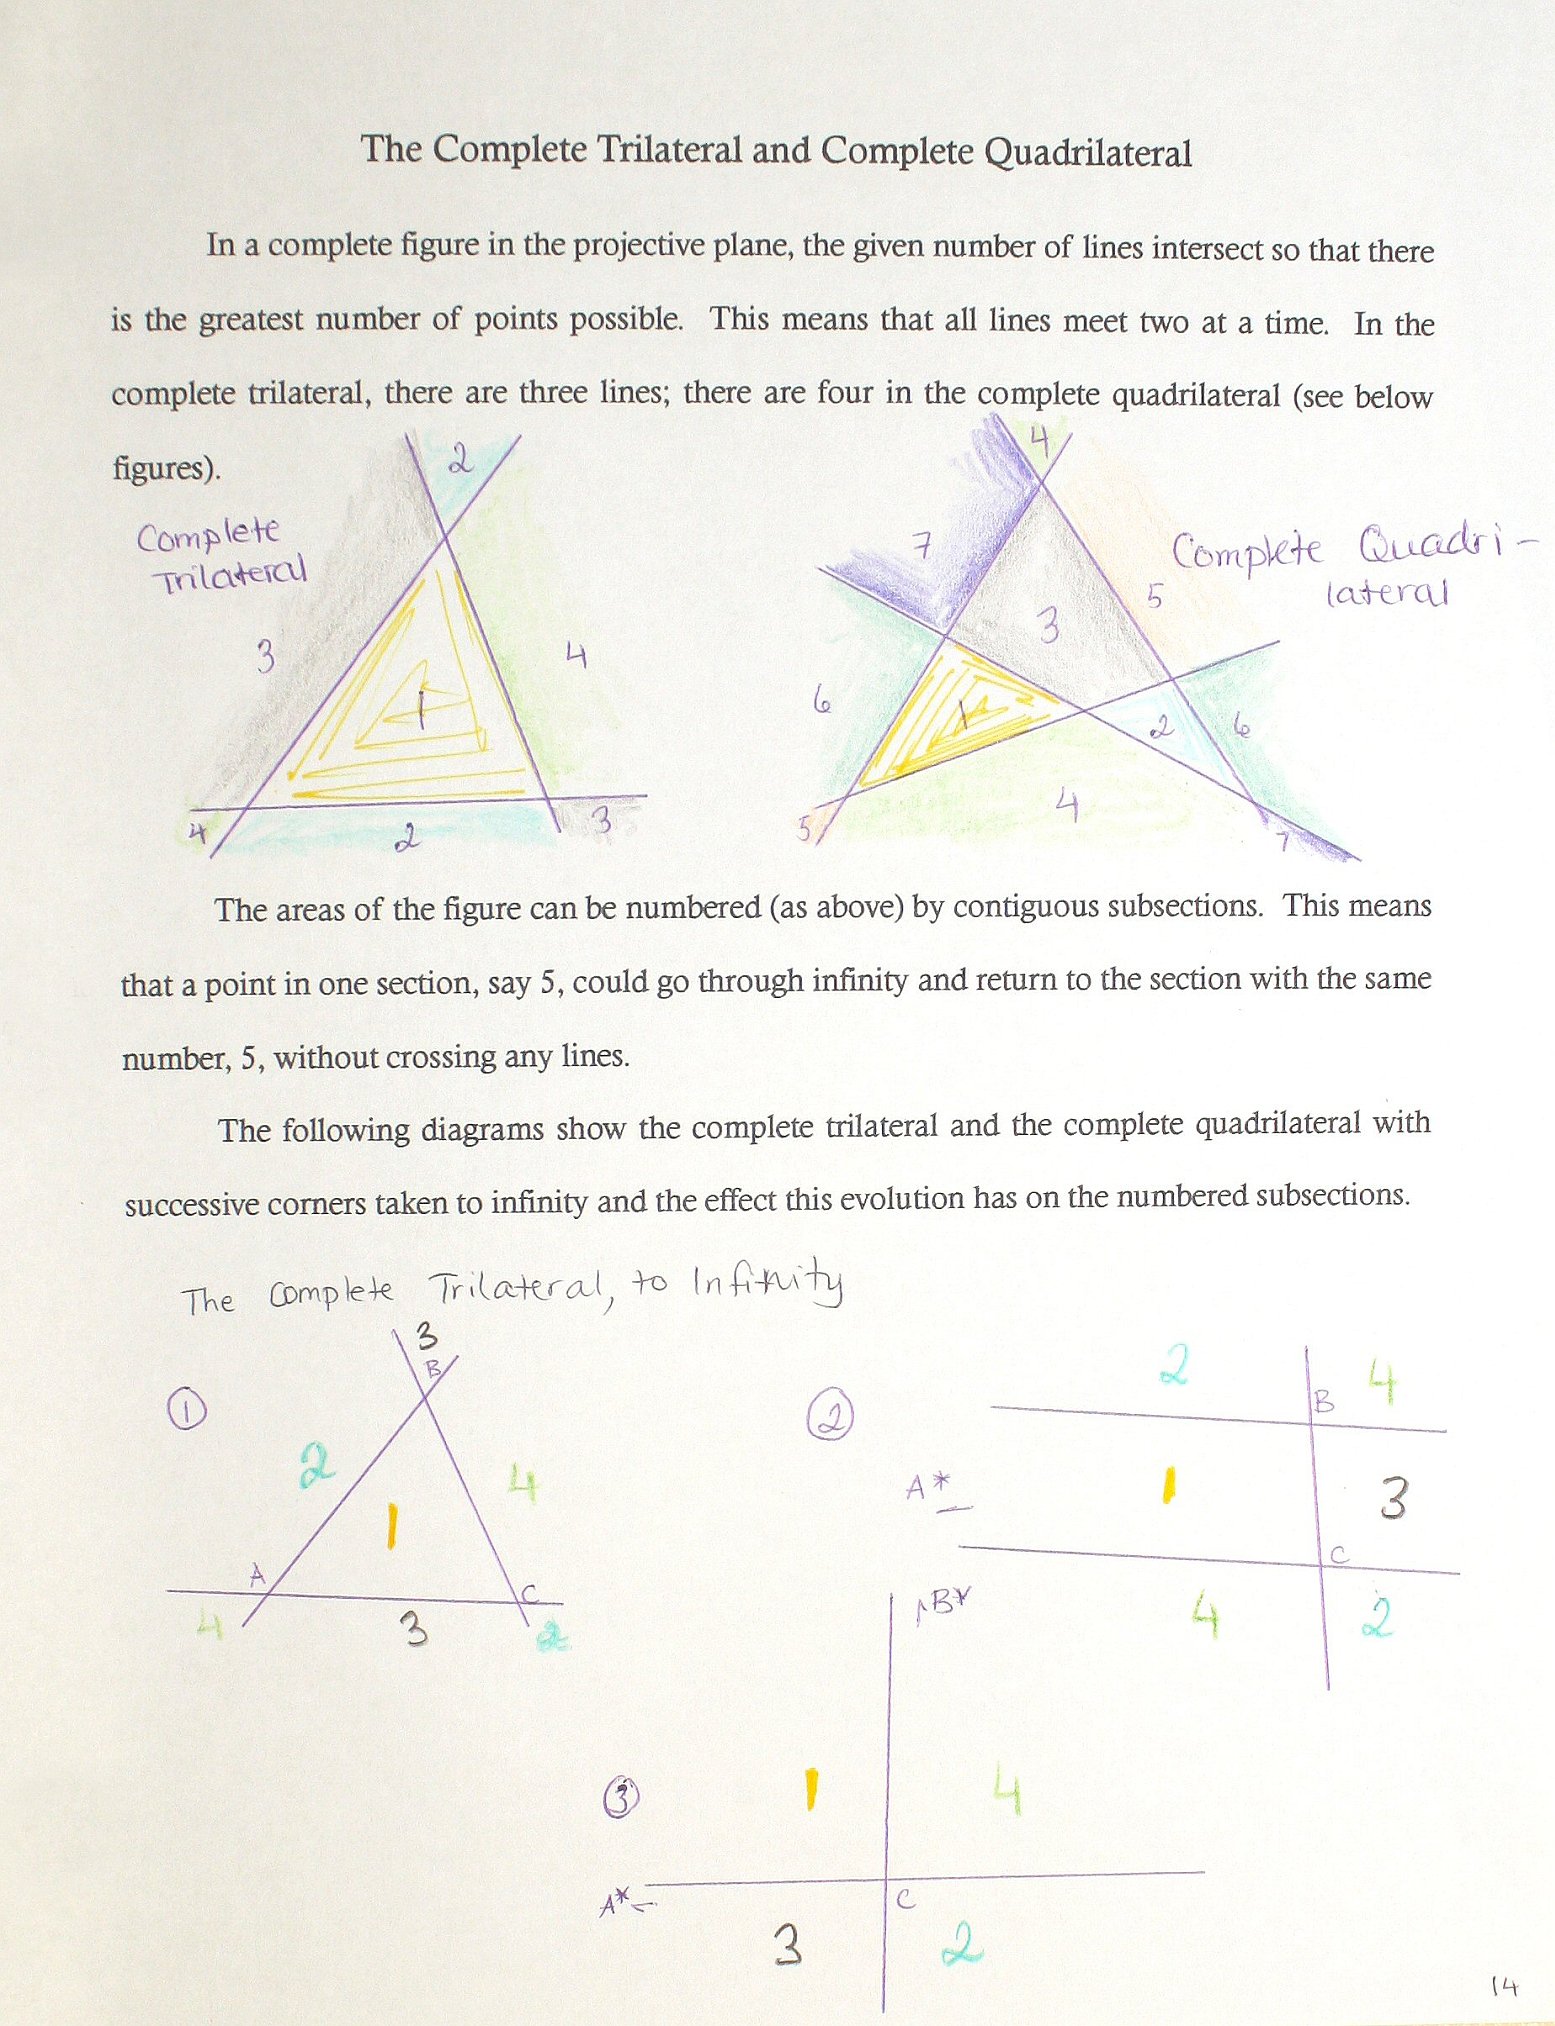 The Complete Trilateral and Complete Quadrilateral
In a complete figure in the projective plane, the given number of lines intersect so that there
is the greatest number of points possible. This means that all lines meet two at a time. In the
complete trilateral, there are three lines; there are four in the complete quadrilateral (see below
figures).
Complete
Trilateral
2
3
1
4
4
2
3
4
7
Complete Quadri-
lateral
5
3
6
1
2
6
5
4
7
The areas of the figure can be numbered (as above) by contiguous subsections. This means
that a point in one section, say 5, could go through infinity and return to the section with the same
number, 5, without crossing any lines.
The following diagrams show the complete trilateral and the complete quadrilateral with
successive corners taken to infinity and the effect this evolution has on the numbered subsections.
The Complete Trilateral, to Infinity
1
3
B
2
4
1
A
C
4
3
2
2
2
4
B
A*
1
3
C
4
2
B*
3
1
4
A*
C
3
2
14